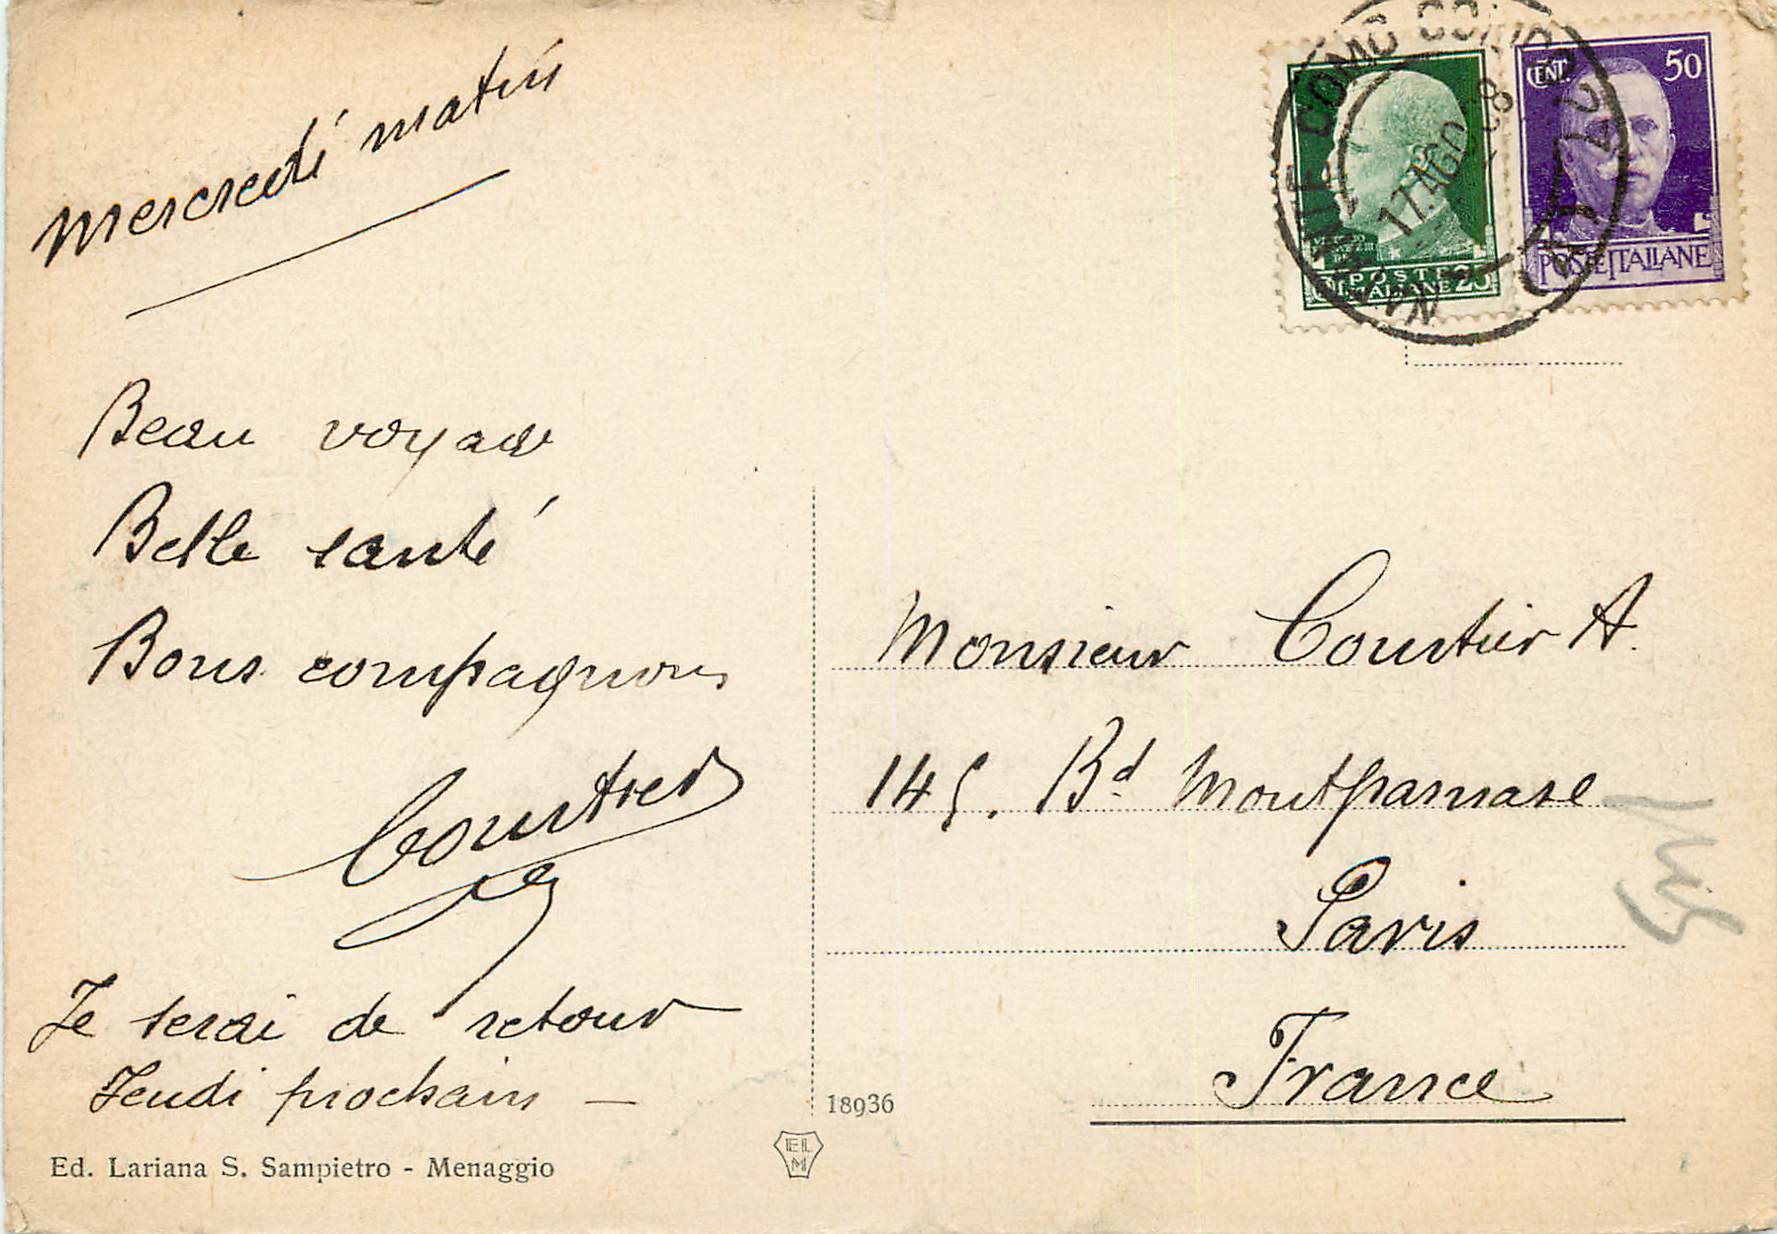 Mercredi matin
Beau voyage
Belle santé
Bons compagnons
Courtier
Je serai de retour
Jeudi prochain —
Ed. Lariana S. Sampietro - Menaggio
18936
ELM
COMO
17.AGO 38
POSTE
ITALIANE 25
CENT. 50
POSTE ITALIANE
Monsieur Courtier A.
145. Bd Montparnasse
Paris
France